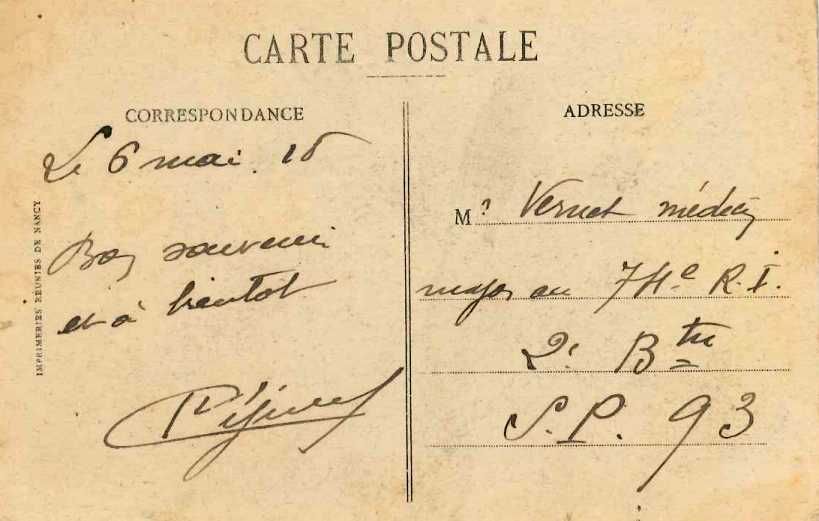 CARTE POSTALE
CORRESPONDANCE
ADRESSE
Le 6 mai
Bon souvenir
et à bientot
Mr Vernet médecin
major au 74e R.I.
2e Bon
S.P. 93
IMPRIMERIES RÉUNIES DE NANCY